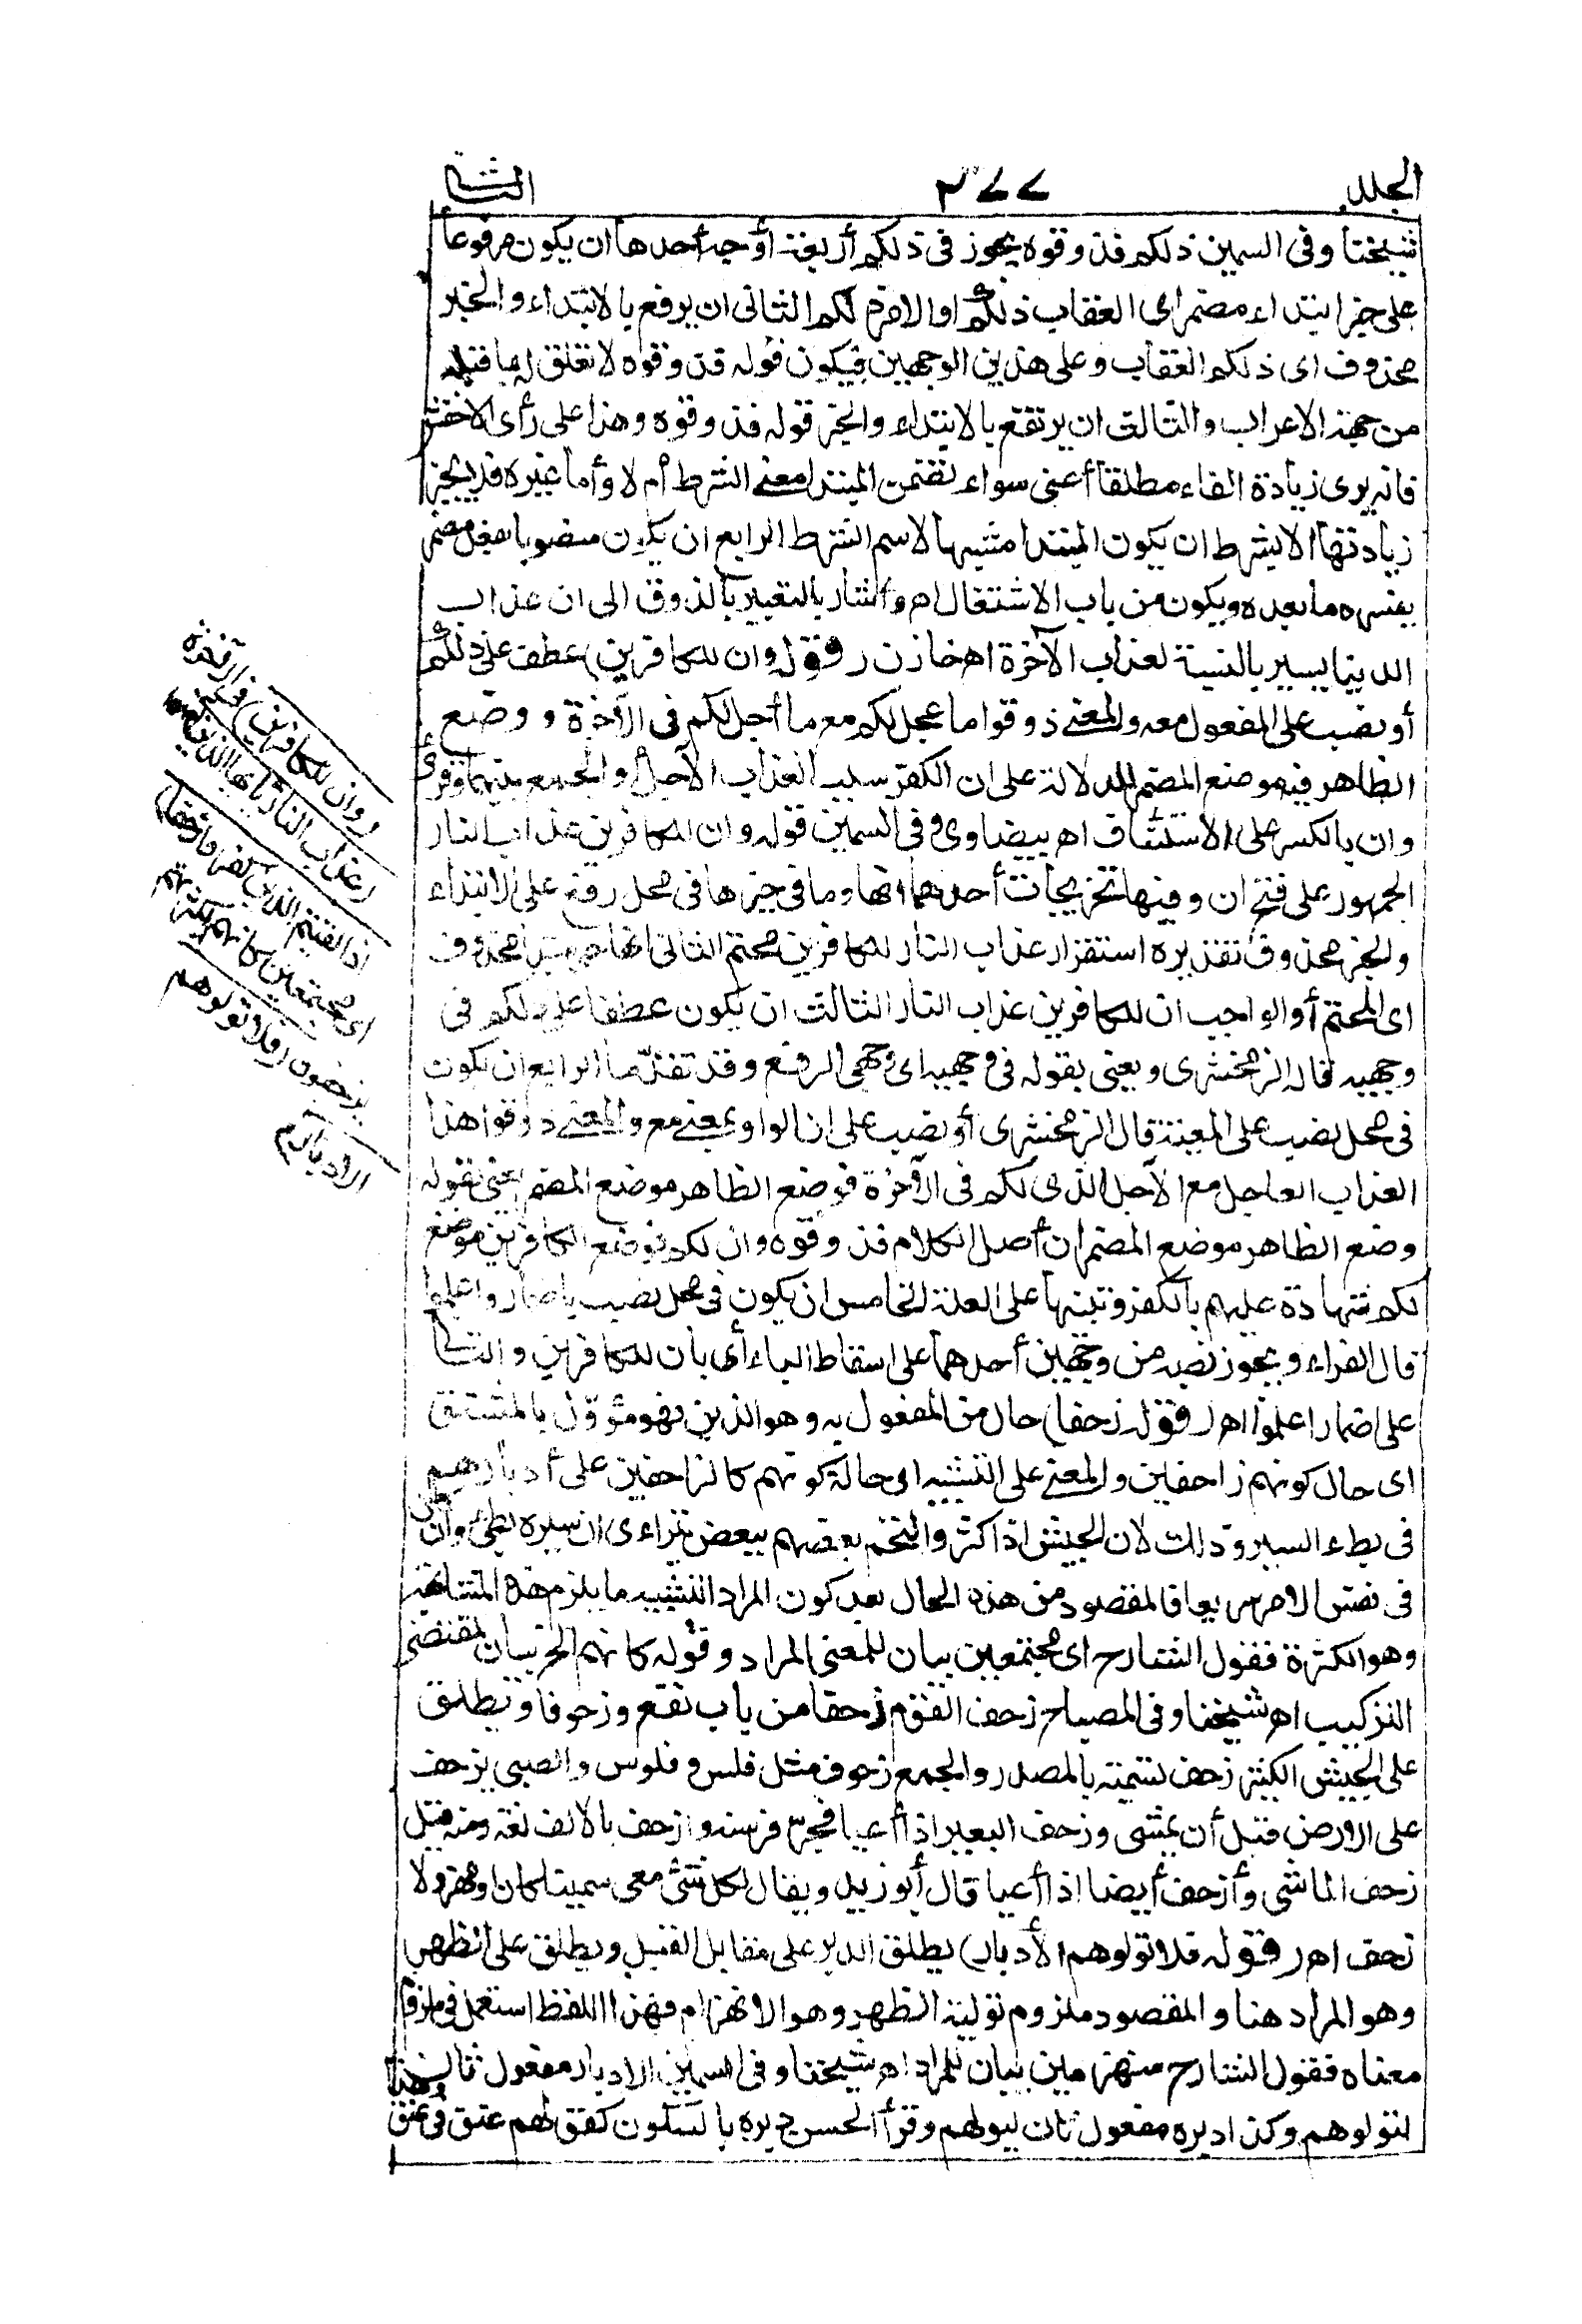 المجلد ٢٧٧ الثانى
شيخنا وفى السمين ذلكم فذوقوه يجوز فى ذلكم أربعة أوجه أحدها ان يكون مرفوعا
على خبر ابتداء مضمر اى العقاب ذلكم او الامر ذلكم الثانى ان يرفع بالابتداء والخبر
محذوف اى ذلكم العقاب وعلى هذين الوجهين فيكون قوله فذوقوه لا تعلق له بما قبله
من جهة الاعراب والثالث ان يرتفع بالابتداء والخبر قوله فذوقوه وهذا على رأى الاخفش
فانه يرى زيادة الفاء مطلقا أعنى سواء تضمن المبتدا معنى الشرط أم لا وأما غيره فلا يجيز
زيادتها الا بشرط ان يكون المبتدا مشبها لاسم الشرط الرابع ان يكون منصوبا بفعل مضمر
يفسره ما بعده ويكون من باب الاشتغال اه وأشار بالتعبير بالذوق الى ان عذاب
الدنيا يسير بالنسبة لعذاب الآخرة اه خازن (قوله وان للكافرين) عطف على ذلكم
أو نصب على المفعول معه والمعنى ذوقوا ما عجل لكم مع ما أجل لكم فى الآخرة ووضع
الظاهر فيه موضع المضمر للدلالة على ان الكفر سبب العذاب الآجل أو الجمع بينهما وقرئ
وان بالكسر على الاستئناف اه بيضاوى وفى السمين قوله وان للكافرين عذاب النار
الجمهور على فتح ان وفيها تخريجات أحدها انها وما فى حيزها فى محل رفع على الابتداء
والخبر محذوف تقديره استقرار عذاب النار للكافرين محتم الثانى انها خبر مبتدا محذوف
اى المحتم أو الواجب ان للكافرين عذاب النار الثالث ان يكون عطفا على ذلكم فى
وجهيه قاله الزمخشرى ويعنى بقوله فى وجهيه اى وجهى الرفع وقد تقدما الرابع ان يكون
فى محل نصب على المعية قال الزمخشرى أو نصب على ان الواو بمعنى مع والمعنى ذوقوا هذا
العذاب العاجل مع الآجل الذى لكم فى الآخرة فوضع الظاهر موضع المضمر يعنى بقوله
وضع الظاهر موضع المضمر ان أصل الكلام فذوقوه وان لكم فوضع الكافرين موضع
لكم شهادة عليهم بالكفر وتنبيها على العلة الخامس ان يكون فى محل نصب باضمار واعلموا
قال الفراء ويجوز نصبه من وجهين أحدهما على اسقاط الباء أى بان للكافرين والثانى
على اضمار اعلموا اه (قوله زحفا) حال من المفعول به وهو الذين فهو مؤول بالمشتق
اى حال كونهم زاحفين والمعنى على التشبيه اى حالة كونهم كالزاحفين على أدبارهم
فى بطء السير وذلك لان الجيش اذا كثر والتحم بعضهم ببعض يتراءى ان سيره بطىء وان كان
فى نفس الامر سريعا فالمقصود من هذه الحال بعد كون المراد التشبيه ما يلزم هذه المشابهة
وهو الكثرة فقول الشارح اى مجتمعين بيان للمعنى المراد وقوله كانهم الخ بيان لمقتضى
التركيب اه شيخنا وفى المصباح زحف القوم زحفا من باب نفع وزحوفا ويطلق
على الجيش الكثير زحف تسمية بالمصدر والجمع زحوف مثل فلس وفلوس والصبى يزحف
على الارض قبل أن يمشى وزحف البعير اذا أعيا فجر فرسنه وأزحف بالالف لغة ومنه قيل
زحف الماشى وأزحف أيضا اذا أعيا قال أبو زيد ويقال لكل شئ معى سمينا كان أو مهزولا
زحف اه (قوله فلا تولوهم الأدبار) يطلق الدبر على مقابل القبل ويطلق على الظهر
وهو المراد هنا والمقصود ملزوم تولية الظهر وهو الانهزام فهذا اللفظ استعمل فى ملزوم
معناه فقول الشارح منهزمين بيان للمراد اه شيخنا وفى السمين الادبار مفعول ثان
لتولوهم وكذا دبره مفعول ثان ليولهم وقرأ الحسن دبره بالسكون كقولهم عنق فى عنق وهذا
(وان للكافرين) فى الآخرة
(عذاب النار يا أيها الذين آمنوا
اذا لقيتم الذين كفروا زحفا)
اى مجتمعين كانهم لكثرتهم
يزحفون (فلا تولوهم
الادبار)